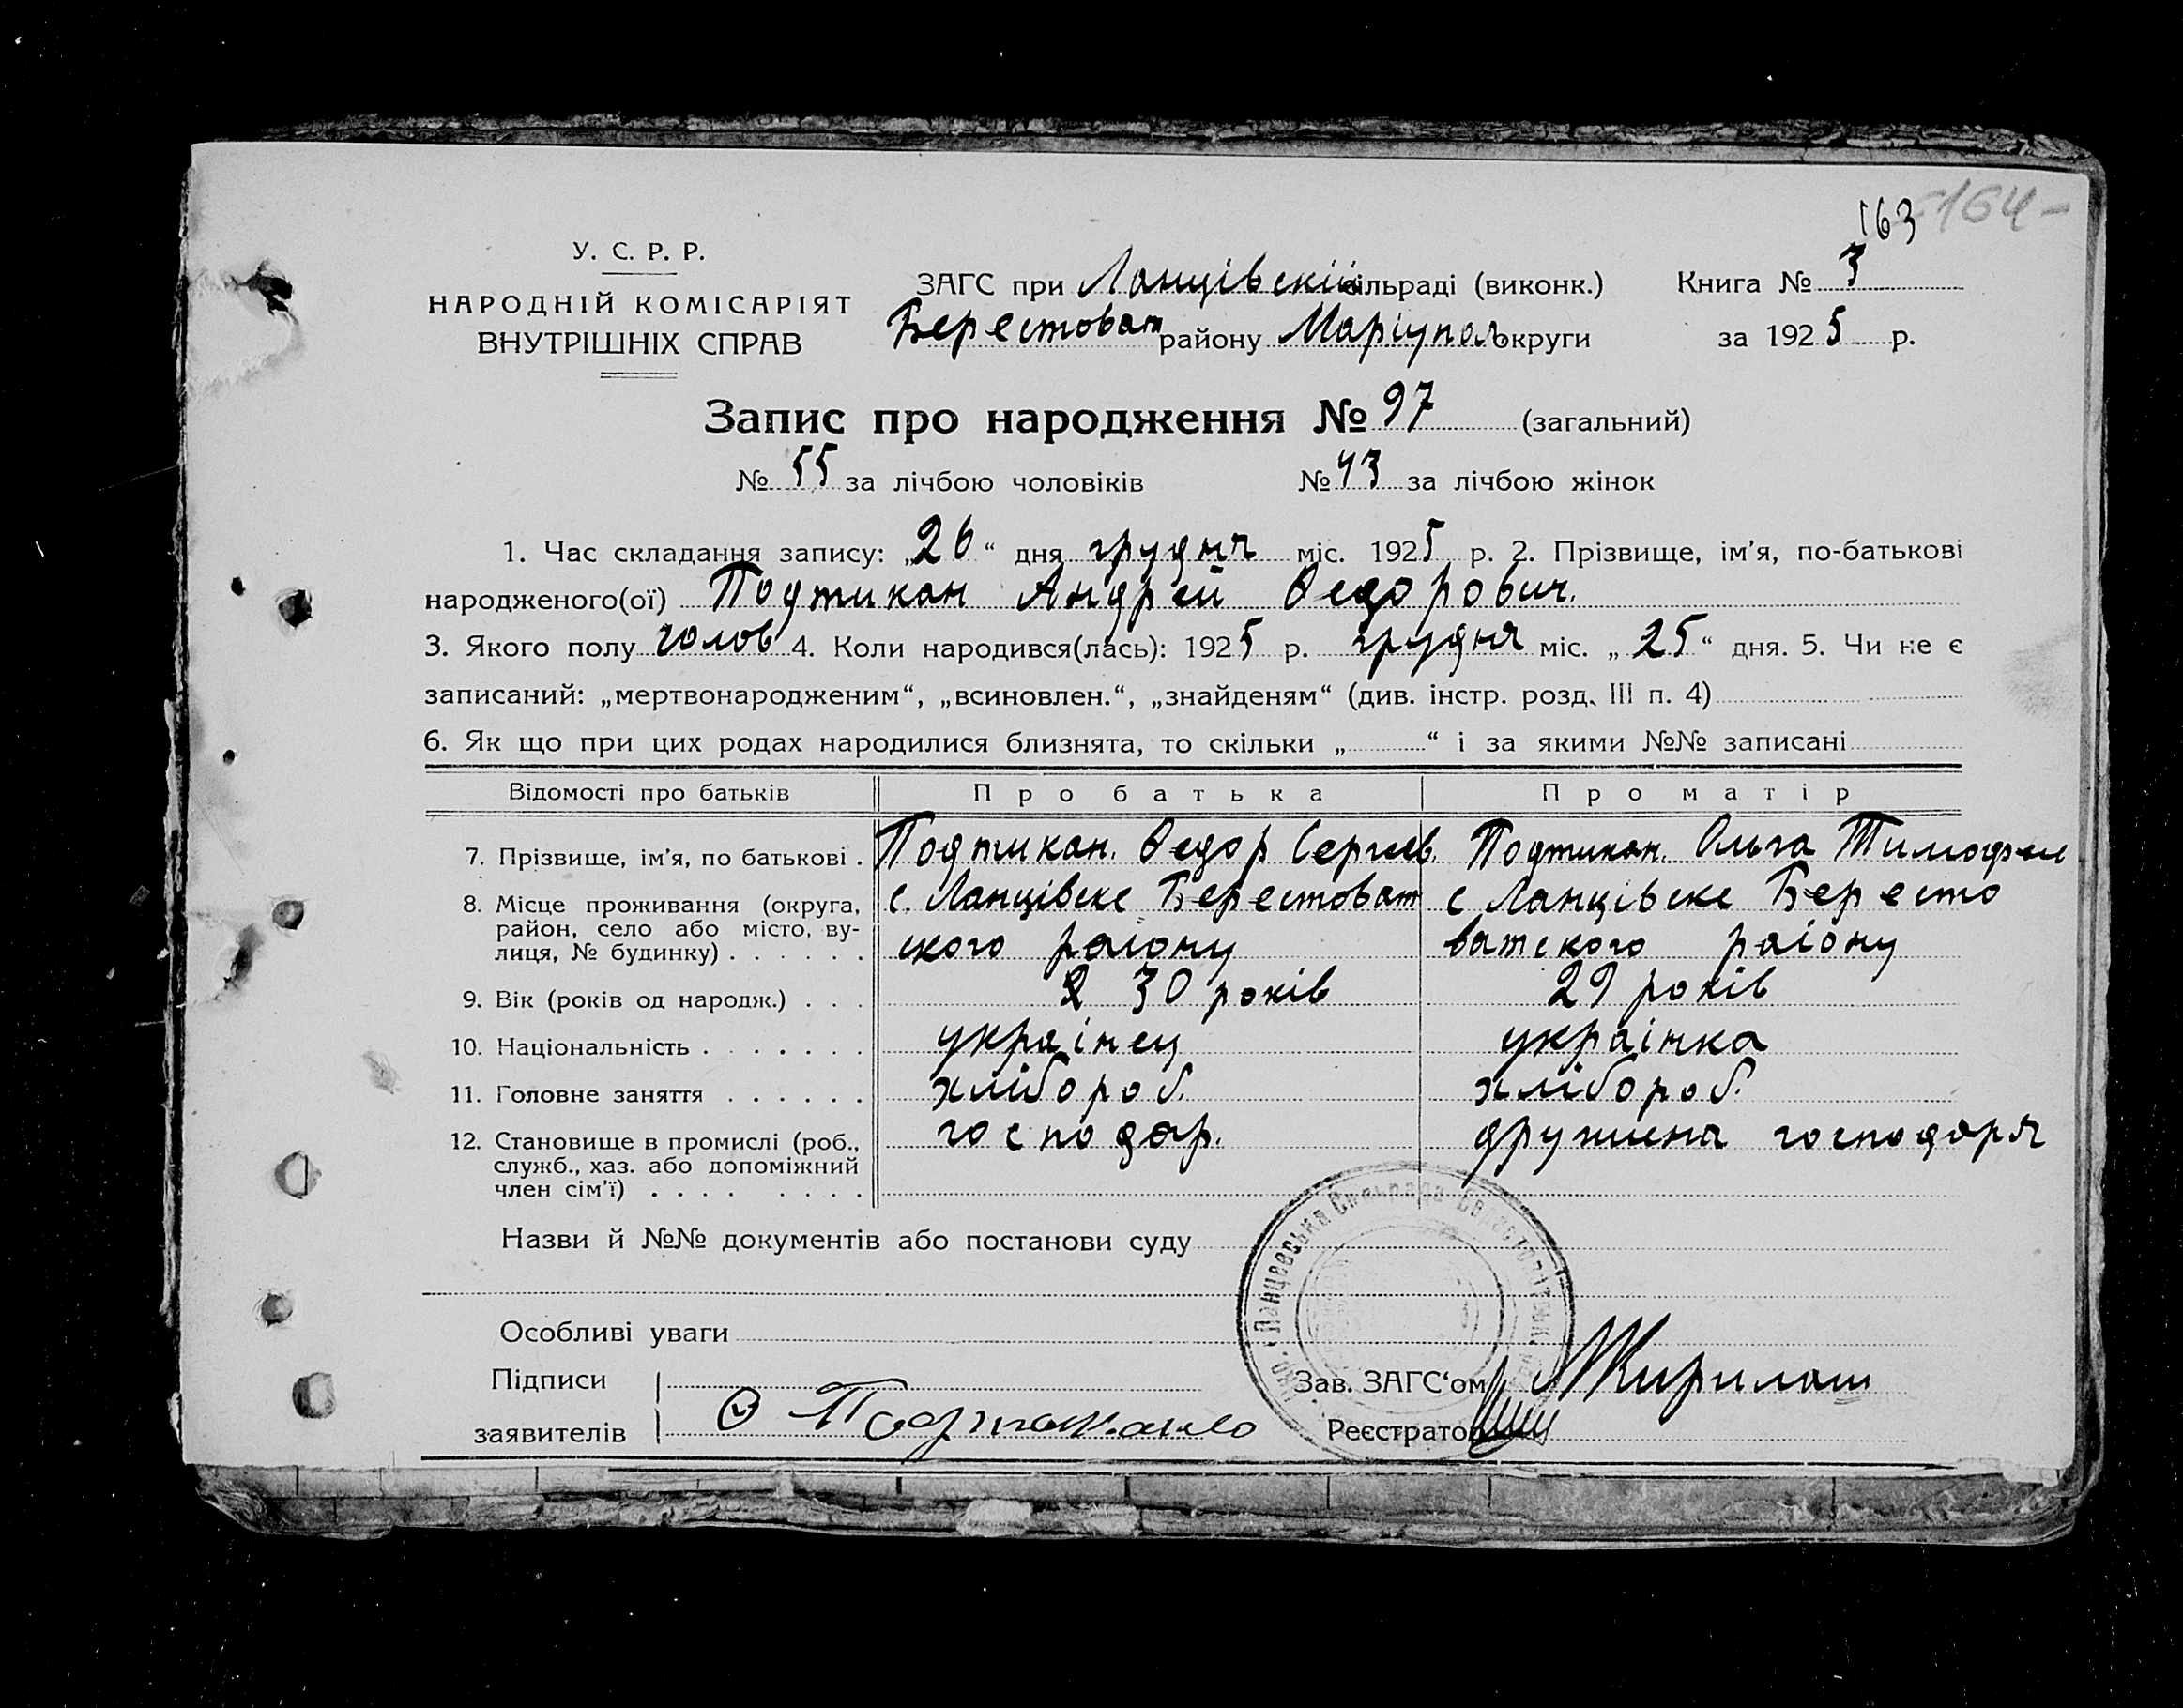 163 -164-
У. С. Р. Р.
НАРОДНІЙ КОМІСАРІЯТ
ВНУТРІШНІХ СПРАВ
ЗАГС при Ланцівскій сільраді (виконк.) Книга № 3
Берестоват району Маріупол округи за 1925 р.
Запис про народження № 97 (загальний)
№ 55 за лічбою чоловіків № 43 за лічбою жінок
1. Час складання запису: „26“ дня грудня міс. 1925 р. 2. Прізвище, ім’я, по-батькові
народженого(ої) Подтикан Андрей Федорович.
3. Якого полу чолов 4. Коли народився(лась): 1925 р. грудня міс. „25“ дня. 5. Чи не є
записаний: „мертвонародженим“, „всиновлен.“, „знайденям“ (див. інстр. розд. III п. 4)
6. Як що при цих родах народилися близнята, то скільки „ “ і за якими №№ записані
Відомості про батьків Про батька Про матір
7. Прізвище, ім’я, по батькові . Подтикан. Федор Сергеев. Подтикан. Ольга Тимофеи
8. Місце проживання (округа, с. Ланцівске Берестоват с Ланцівске Бересто
район, село або місто, ву-
лиця, № будинку) . . . . . . ского раіону ватского раіону
9. Вік (років од народж.) . . . 30 років 29 років
10. Національність . . . . . . . украінец украінка
11. Головне заняття . . . . . . хлібороб. хлібороб.
12. Становище в промислі (роб., господар. дружина господаря
служб., хаз. або допоміжний
член сім’ї) . . . . . . . .
Назви й №№ документів або постанови суду
Особливі уваги
Підписи
заявителів
Зав. ЗАГС‘ом
Реєстратор
Ланцевська Сильрада